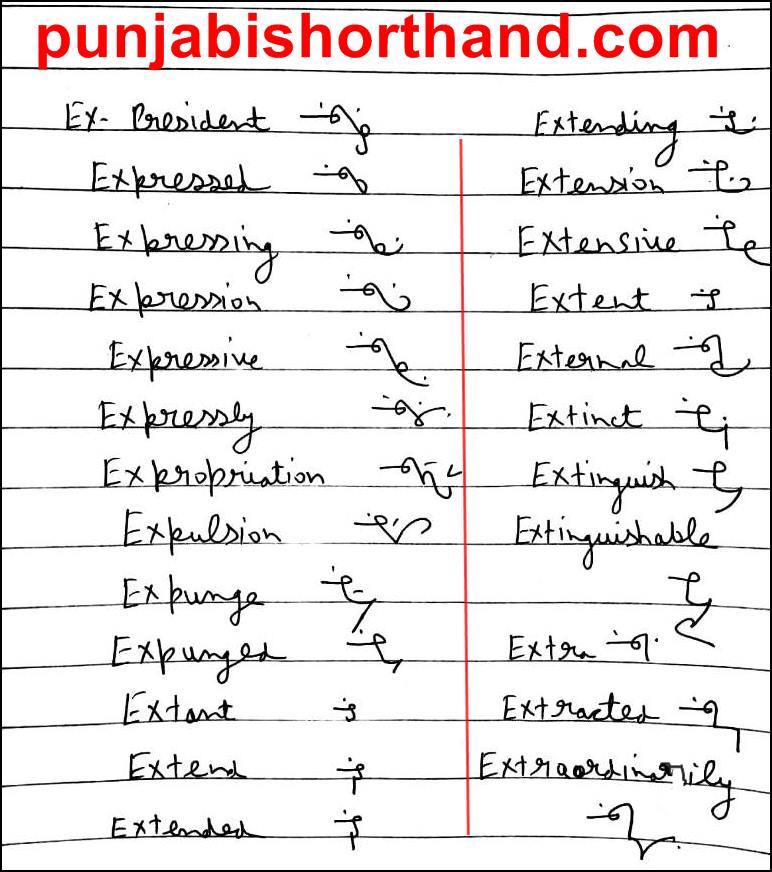 punjabishorthand.com
Ex- President
Expressed
Expressing
Expression
Expressive
Expressly
Expropriation
Expulsion
Expunge
Expunged
Extant
Extend
Extended
Extending
Extension
Extensive
Extent
External
Extinct
Extinguish
Extinguishable
Extra
Extracted
Extraordinarily